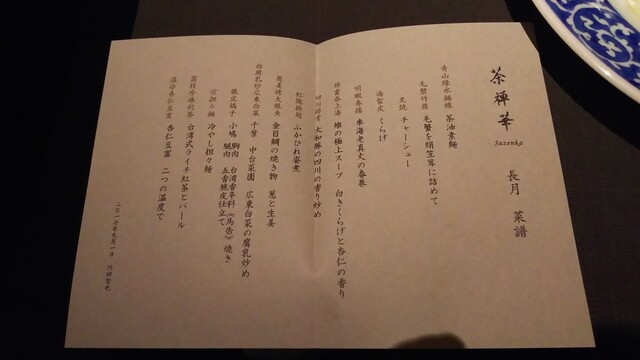 茶禅華
Sazenka
長月 菜譜
青山緑水麺線 茶油素麺
毛蟹竹蓀 毛蟹を絹笠茸に詰めて
叉焼 チャーシュー
海蜇皮 くらげ
明蝦春捲 車海老真丈の春巻
雉雲呑上湯 雉の極上スープ 白きくらげと杏仁の香り
四川 大和豚の四川の香り炒め
紅焼排翅 ふかひれ姿煮
葱姜 金目鯛の焼き物 葱と生姜
白腐乳炒広東白菜 千葉 中台菜園 広東白菜の腐乳炒め
脆皮鴿子 小鳩 胸肉 台湾香辛料《馬告》焼き
腿肉 五香脆皮仕立て
涼担々麺 冷やし担々麺
茘枝珍珠紅茶 台湾式ライチ紅茶とパール
温冷杏仁豆富 杏仁豆富 二つの温度で
二〇一七年九月一日 川田智也